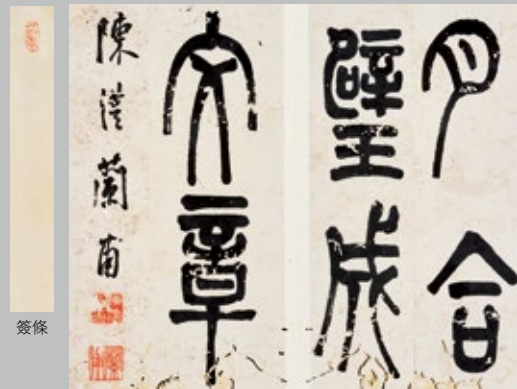 月合
璧成
文章
陳澧蘭甫
簽條